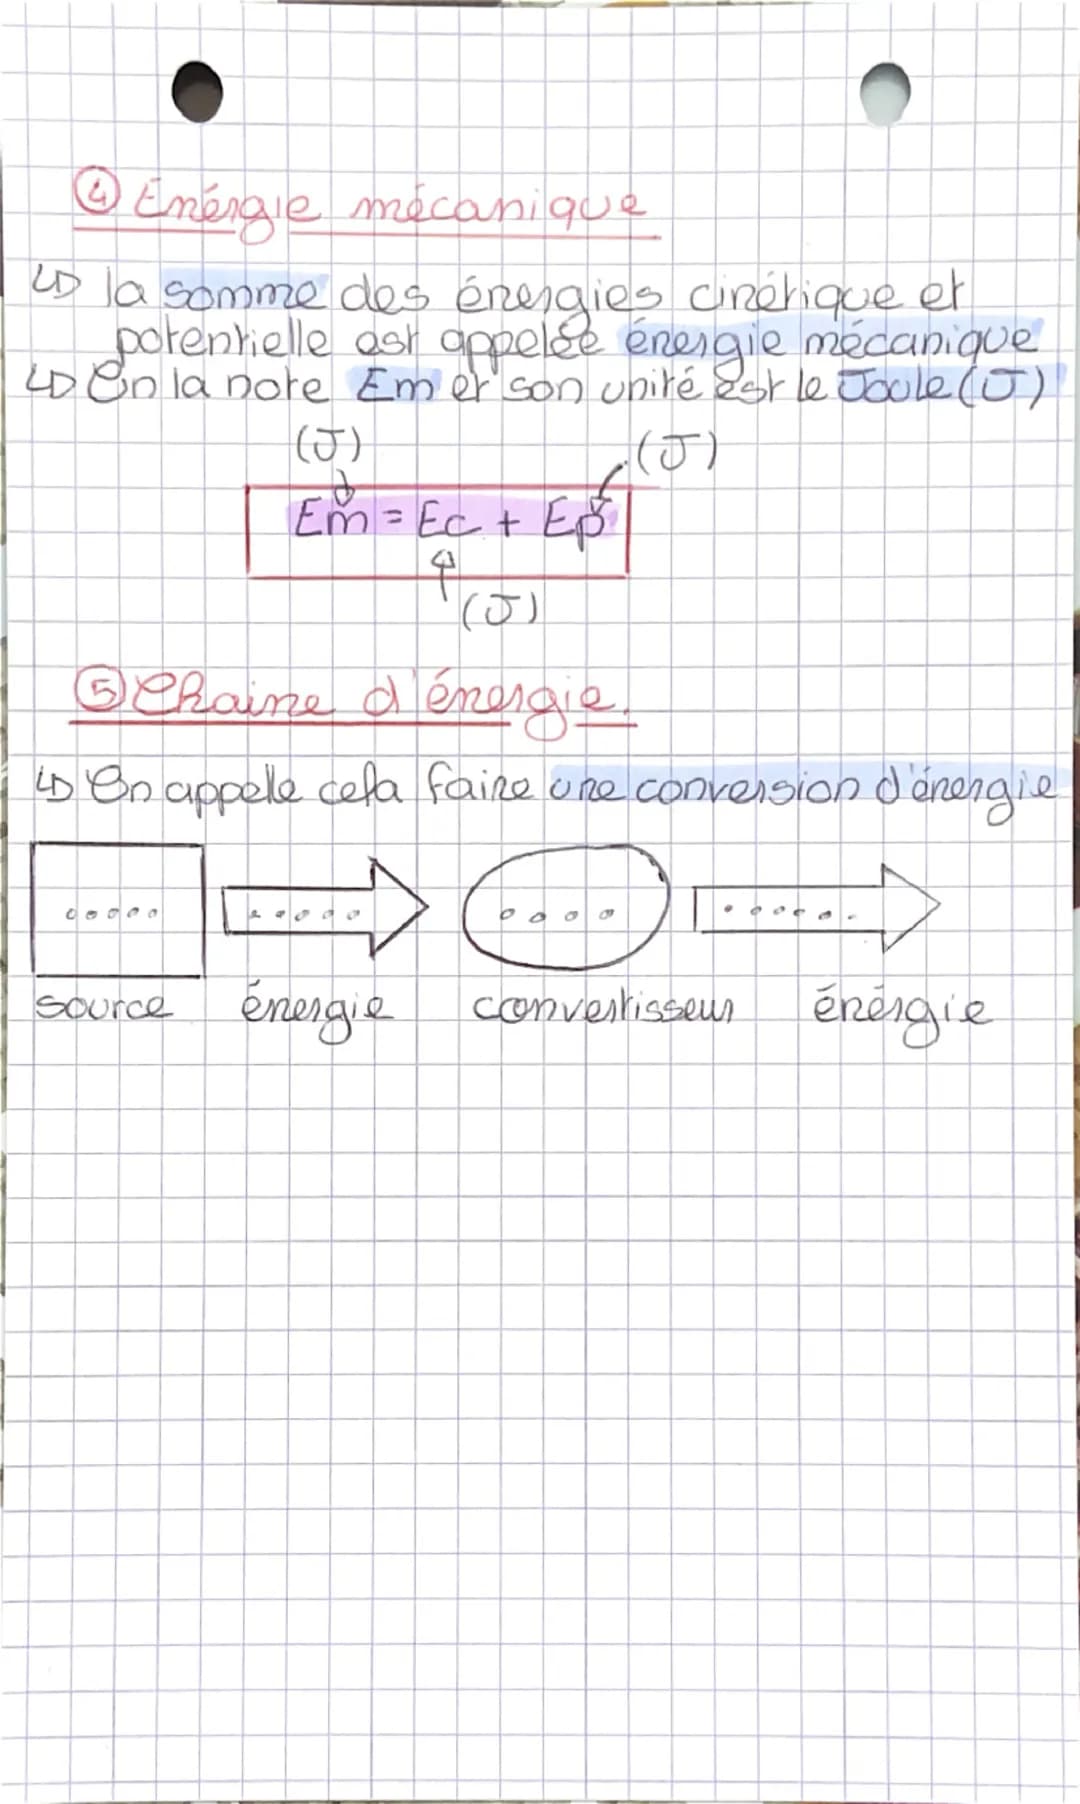 ④ Énérgie mécanique
↳ la somme des énergies cinétique et
potentielle est appelée énergie mécanique
↳ On la note Em et son unité est le Joule (J)
(J) (J)
Em = Ec + Ep
(J)
⑤ Chaine d'énergie.
↳ On appelle cela faire une conversion d'énergie
..... ..... .... ......
source énergie convertisseur énérgie